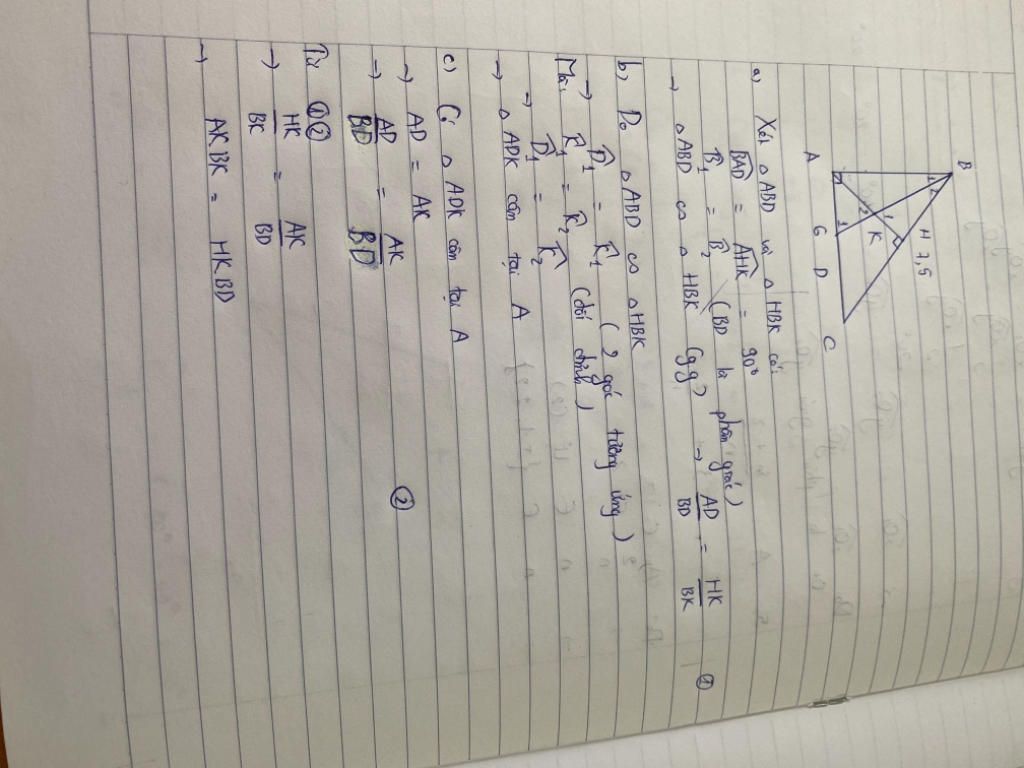 B
H 7,5
K
A 6 D C
a) Xét △ABD và △HBK có:
BAD = AHK = 90°
B1 = B2 (BD là phân giác)
→ △ABD ∽ △HBK (gg) → AD/BD = HK/BK ①
b) Do △ABD ∽ △HBK
→ D1 = K1 (2 góc tương ứng)
Mà: K1 = K2 (đối đỉnh)
→ D1 = K2
→ △ADK cân tại A
c) Có △ADK cân tại A
→ AD = AK
→ AD/BD = AK/BD ②
Từ ①②
→ HK/BK = AK/BD
→ AK.BK = HK.BD